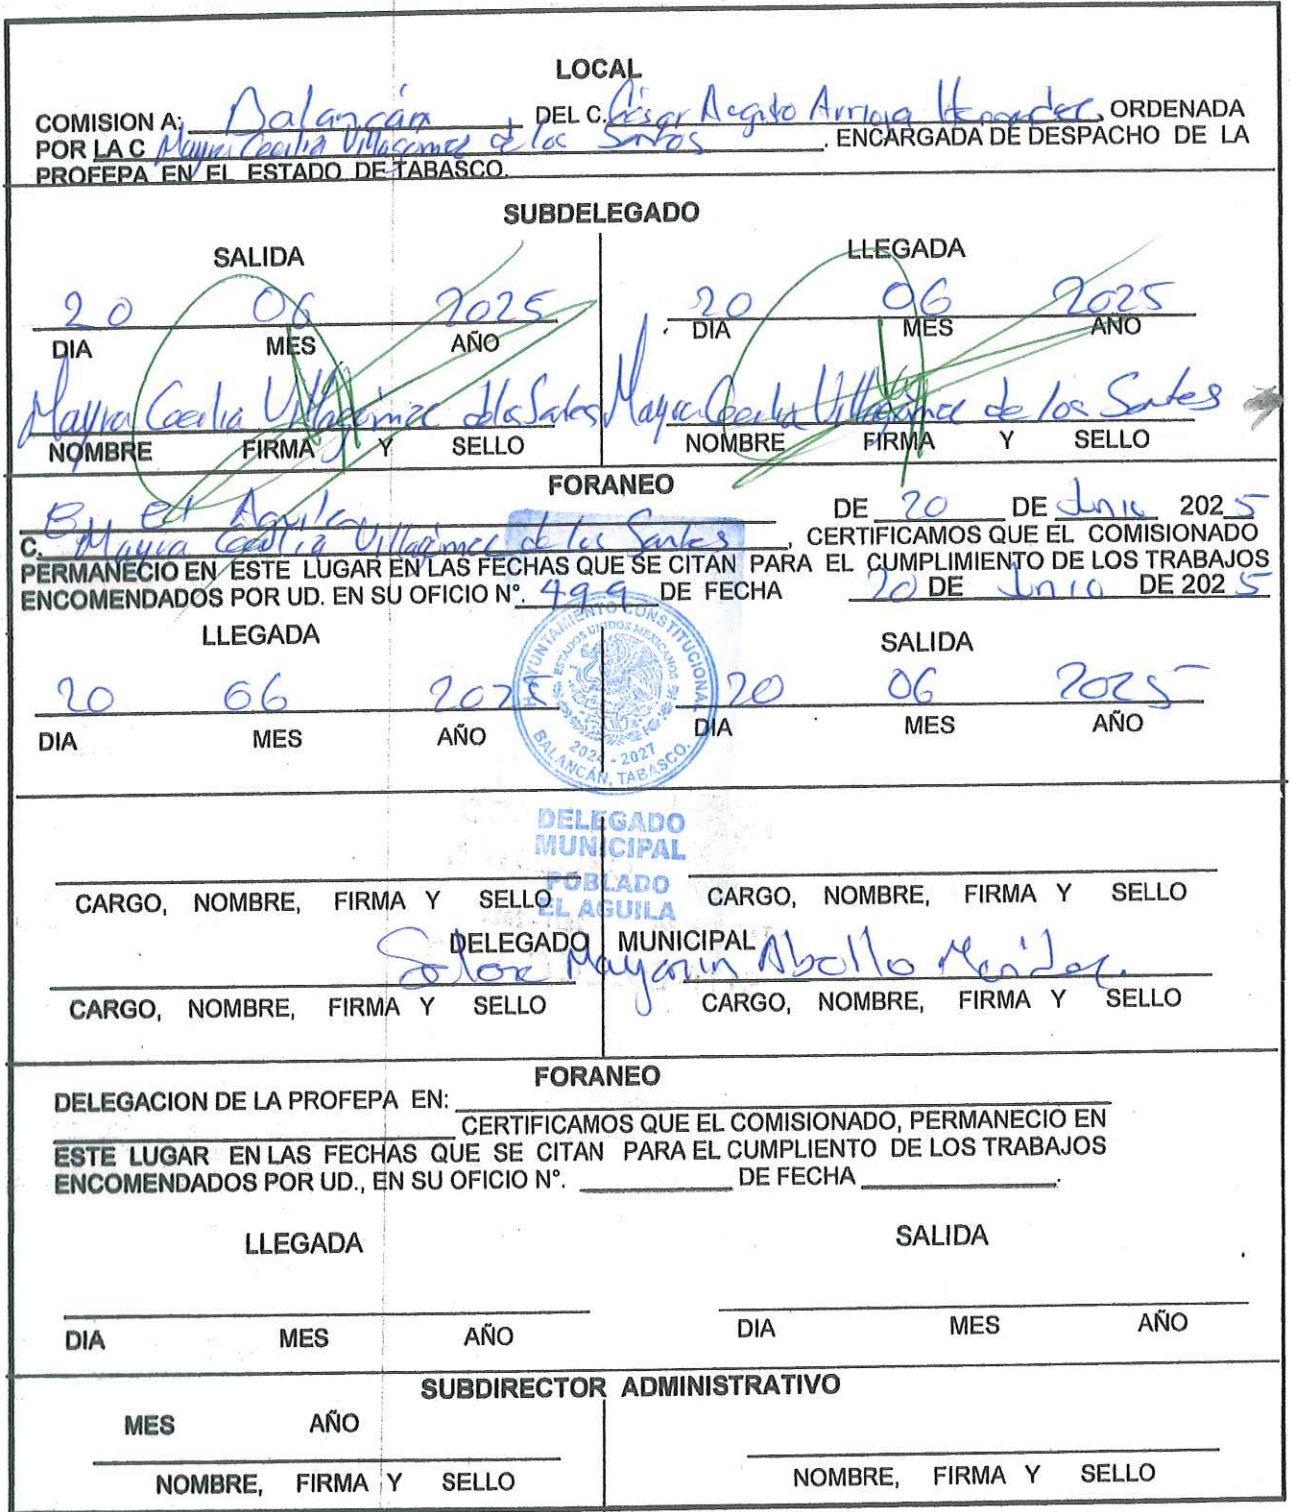 LOCAL
COMISION A: Balancán DEL C. César Augusto Arrioja Hernandez, ORDENADA
POR LA C Mayra Cecilia Villagomez de los Santos. ENCARGADA DE DESPACHO DE LA
PROFEPA EN EL ESTADO DE TABASCO.
SUBDELEGADO
SALIDA LLEGADA
20 06 2025 20 06 2025
DIA MES AÑO DIA MES AÑO
Mayra Cecilia Villagómez de los Santos Mayra Cecilia Villagómez de los Santos
NOMBRE FIRMA Y SELLO NOMBRE FIRMA Y SELLO
FORANEO
El Aguila DE 20 DE Junio 2025
C. Mayra Cecilia Villagómez de los Santos, CERTIFICAMOS QUE EL COMISIONADO
PERMANECIO EN ESTE LUGAR EN LAS FECHAS QUE SE CITAN PARA EL CUMPLIMIENTO DE LOS TRABAJOS
ENCOMENDADOS POR UD. EN SU OFICIO N°. 499 DE FECHA 20 DE Junio DE 2025
LLEGADA SALIDA
H. AYUNTAMIENTO CONSTITUCIONAL
ESTADOS UNIDOS MEXICANOS
2024 - 2027
BALANCÁN, TABASCO.
20 06 2025 20 06 2025
DIA MES AÑO DIA MES AÑO
DELEGADO
MUNICIPAL
POBLADO
EL AGUILA
CARGO, NOMBRE, FIRMA Y SELLO CARGO, NOMBRE, FIRMA Y SELLO
DELEGADO MUNICIPAL
Mayarin Abollo Mendez
CARGO, NOMBRE, FIRMA Y SELLO CARGO, NOMBRE, FIRMA Y SELLO
FORANEO
DELEGACION DE LA PROFEPA EN:
CERTIFICAMOS QUE EL COMISIONADO, PERMANECIO EN
ESTE LUGAR EN LAS FECHAS QUE SE CITAN PARA EL CUMPLIENTO DE LOS TRABAJOS
ENCOMENDADOS POR UD., EN SU OFICIO N°. DE FECHA .
LLEGADA SALIDA
DIA MES AÑO DIA MES AÑO
SUBDIRECTOR ADMINISTRATIVO
MES AÑO
NOMBRE, FIRMA Y SELLO NOMBRE, FIRMA Y SELLO